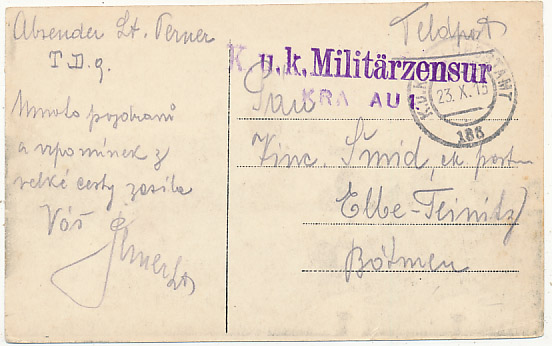 Absender Lt. Perner
T. D. 9.
Mnoho pozdravů
a vzpomínek z
velké cesty zasílá
Váš
Perner Lt
Feldpost
K. u. k. Militärzensur
KRA AU 1
K.u.K.
AMT
23. X. 15
188
Pan
Vinc. Šmid, ck. poštm
Elbe-Teinitz
Böhmen